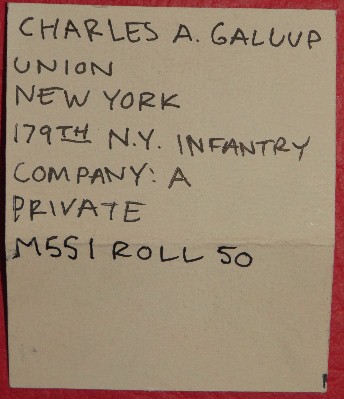 CHARLES A. GALUUP
UNION
NEW YORK
179TH N.Y. INFANTRY
COMPANY: A
PRIVATE
M551 ROLL 50